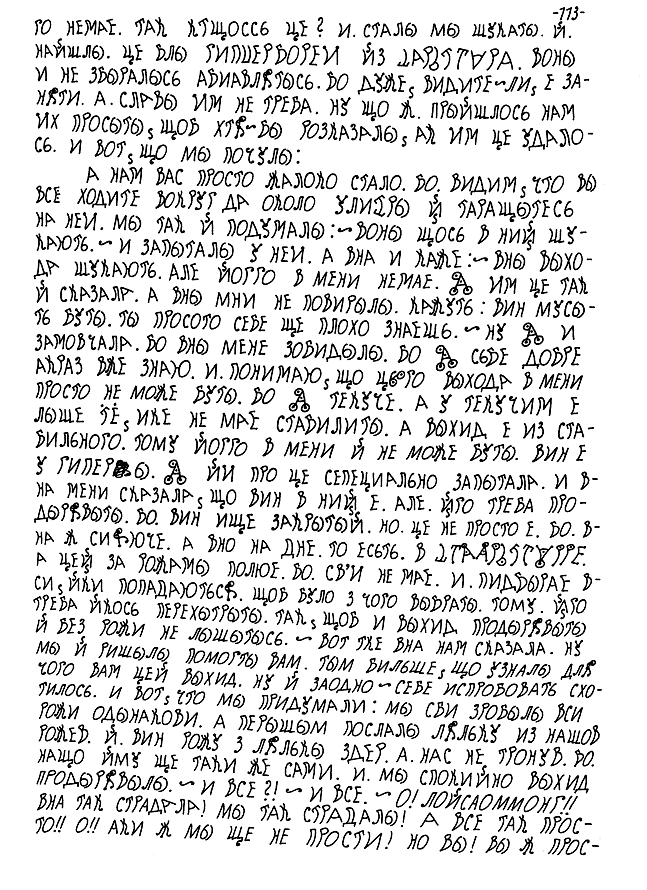 -773-
ГО НЕМАЕ. ТАК КТЩОССЬ ЦЕ? И. СТАЛЫ МЫ ШУКАТЫ. Й.
НАЙШЛЫ. ЦЕ БЛЫ ГИППЕРБОРЕИ ЙЗ ВОНЫ
И НЕ ЗБЫРАЛЫСЬ АВИАВЛЯТЫСЬ. БО ДУЖЕ, ВИДИТЕ~ЛИ, Е ЗА-
НЯТИ. А. СЛАВЫ ИМ НЕ ТРЕБА. НУ ЩО Ж. ПРЫЙШЛОСЬ НАМ
ИХ ПРОСЫТЫ, ЩОБ ХТЯ~БЫ РОЗКАЗАЛЫ, АК ИМ ЦЕ УДАЛО-
СЬ. И ВОТ, ЩО МЫ ПОЧУЛЫ:
А НАМ ВАС ПРОСТО ЖАЛОКО СТАЛО. БО. ВИДИМ, ЧТО ВЫ
ВСЕ ХОДИТЕ ВОКРУГ ДА ОКОЛО Й ТАРАЩЫТЕСЬ
НА НЕИ. МЫ ТАК Й ПОДУМАЛЫ:~ВОНЫ ЩОСЬ В НИЙ ШУ-
КАЮТЬ.~И ЗАПЫТАЛЫ У НЕИ. А ВНА И КАЖЕ:~ВНЫ ВЫХО-
ДА ШУКАЮТЬ. АЛЕ ЙОГГО В МЕНИ НЕМАЕ. ИМ ЦЕ ТАК
Й СКАЗАЛА. А ВНЫ МНИ НЕ ПОВИРЫЛЫ. КАЖУТЬ: ВИН МУСЫ-
ТЬ БУТЫ. ТЫ ПРОСОТО СЕБЕ ЩЕ ПЛОХО ЗНАЕШЬ.~НУ И
ЗАМОВЧАЛА. БО ВНЫ МЕНЕ ЗОБИДЫЛЫ. БО СЕБЕ ДОБРЕ
АКРАЗ ВЖЕ ЗНАЮ. И. ПОНИМАЮ, ЩО ВЫХОДА В МЕНИ
ПРОСТО НЕ МОЖЕ БУТЫ. БО ТЕКУЧЕ. А У ТЕКУЧИМ Е
ЛЫШЕ ТЕ, ИКЕ НЕ МАЕ СТАБИЛИТЫ. А ВЫХИД Е ИЗ СТА-
БИЛЬНОГО. ТОМУ ЙОГГО В МЕНИ Й НЕ МОЖЕ БУТЫ. ВИН Е
У ЙИ ПРО ЦЕ СЕПЕЦИАЛЬНО ЗАПЫТАЛА. И В-
НА МЕНИ СКАЗАЛА, ЩО ВИН В НИЙ Е. АЛЕ. ЙГО ТРЕБА ПРО-
ДЫРЯВЫТЫ. БО. ВИН ИЩЕ ЗАКРЫТЫЙ. НО. ЦЕ НЕ ПРОСТО Е. БО. В-
НА Ж А ВНО НА ДНЕ. ТО ЕСЬТЬ. В
А ЦЕЙ ЗА РОЖАМЫ ПОЛЮЕ. БО. СВ'И НЕ МАЕ. И. ПИДБЫРАЕ В-
СИ, ЙКИ ПОПАДАЮТЬСЯ. ЩОБ БУЛО З ЧОГО ВЫБРАТЫ. ТОМУ. ЙГО
ТРЕБА ЙКОСЬ ПЕРЕХЫТРЫТЫ. ТАК, ЩОБ И ВЫХИД ПРОДЫРЯВЫТЫ
Й БЕЗ РОЖИ НЕ ЛЫШЫТЫСЬ.~ВОТ ТКЕ ВНА НАМ СКАЗАЛА. НУ
МЫ Й РИШЫЛЫ ПОМОГТЫ ВАМ. ТЫМ БИЛЬШЕ, ЩО УЗНАЛЫ ДЛЯ
ЧОГО ВАМ ЦЕЙ ВЫХИД. НУ Й ЗАОДНО~СЕБЕ ИСПРОБОВАТЬ СХО-
ТИЛОСЬ. И ВОТ, ЧТО МЫ ПРИДУМАЛИ: МЫ СВИ ЗРОБЫЛЫ ВСИ
РОЖИ ОДЫНАКОВИ. А ПЕРЫШЫМ ПОСЛАЛЫ ЛЯЛЬКУ ИЗ НАШОВ
РОЖЕВ. Й. ВИН РОЖУ З ЛЯЛЬКЫ ЗДЕР. А. НАС НЕ ТРОНУВ. БО.
НАЩО ЙМУ ЩЕ ТАКИ ЖЕ САМИ. И. МЫ СПОКИЙНО ВЫХИД
ПРОДЫРЯВЫЛЫ.~И ВСЕ?!~И ВСЕ.~О! ЛОЙСАОММОНГ!!
ВНА ТАК СТРАДАЛА! МЫ ТАК СТРАДАЛЫ! А ВСЕ ТАК ПРОС-
ТО!! О!! АКИ Ж МЫ ЩЕ НЕ ПРОСТИ! НО ВЫ! ВЫ Ж ПРОС-